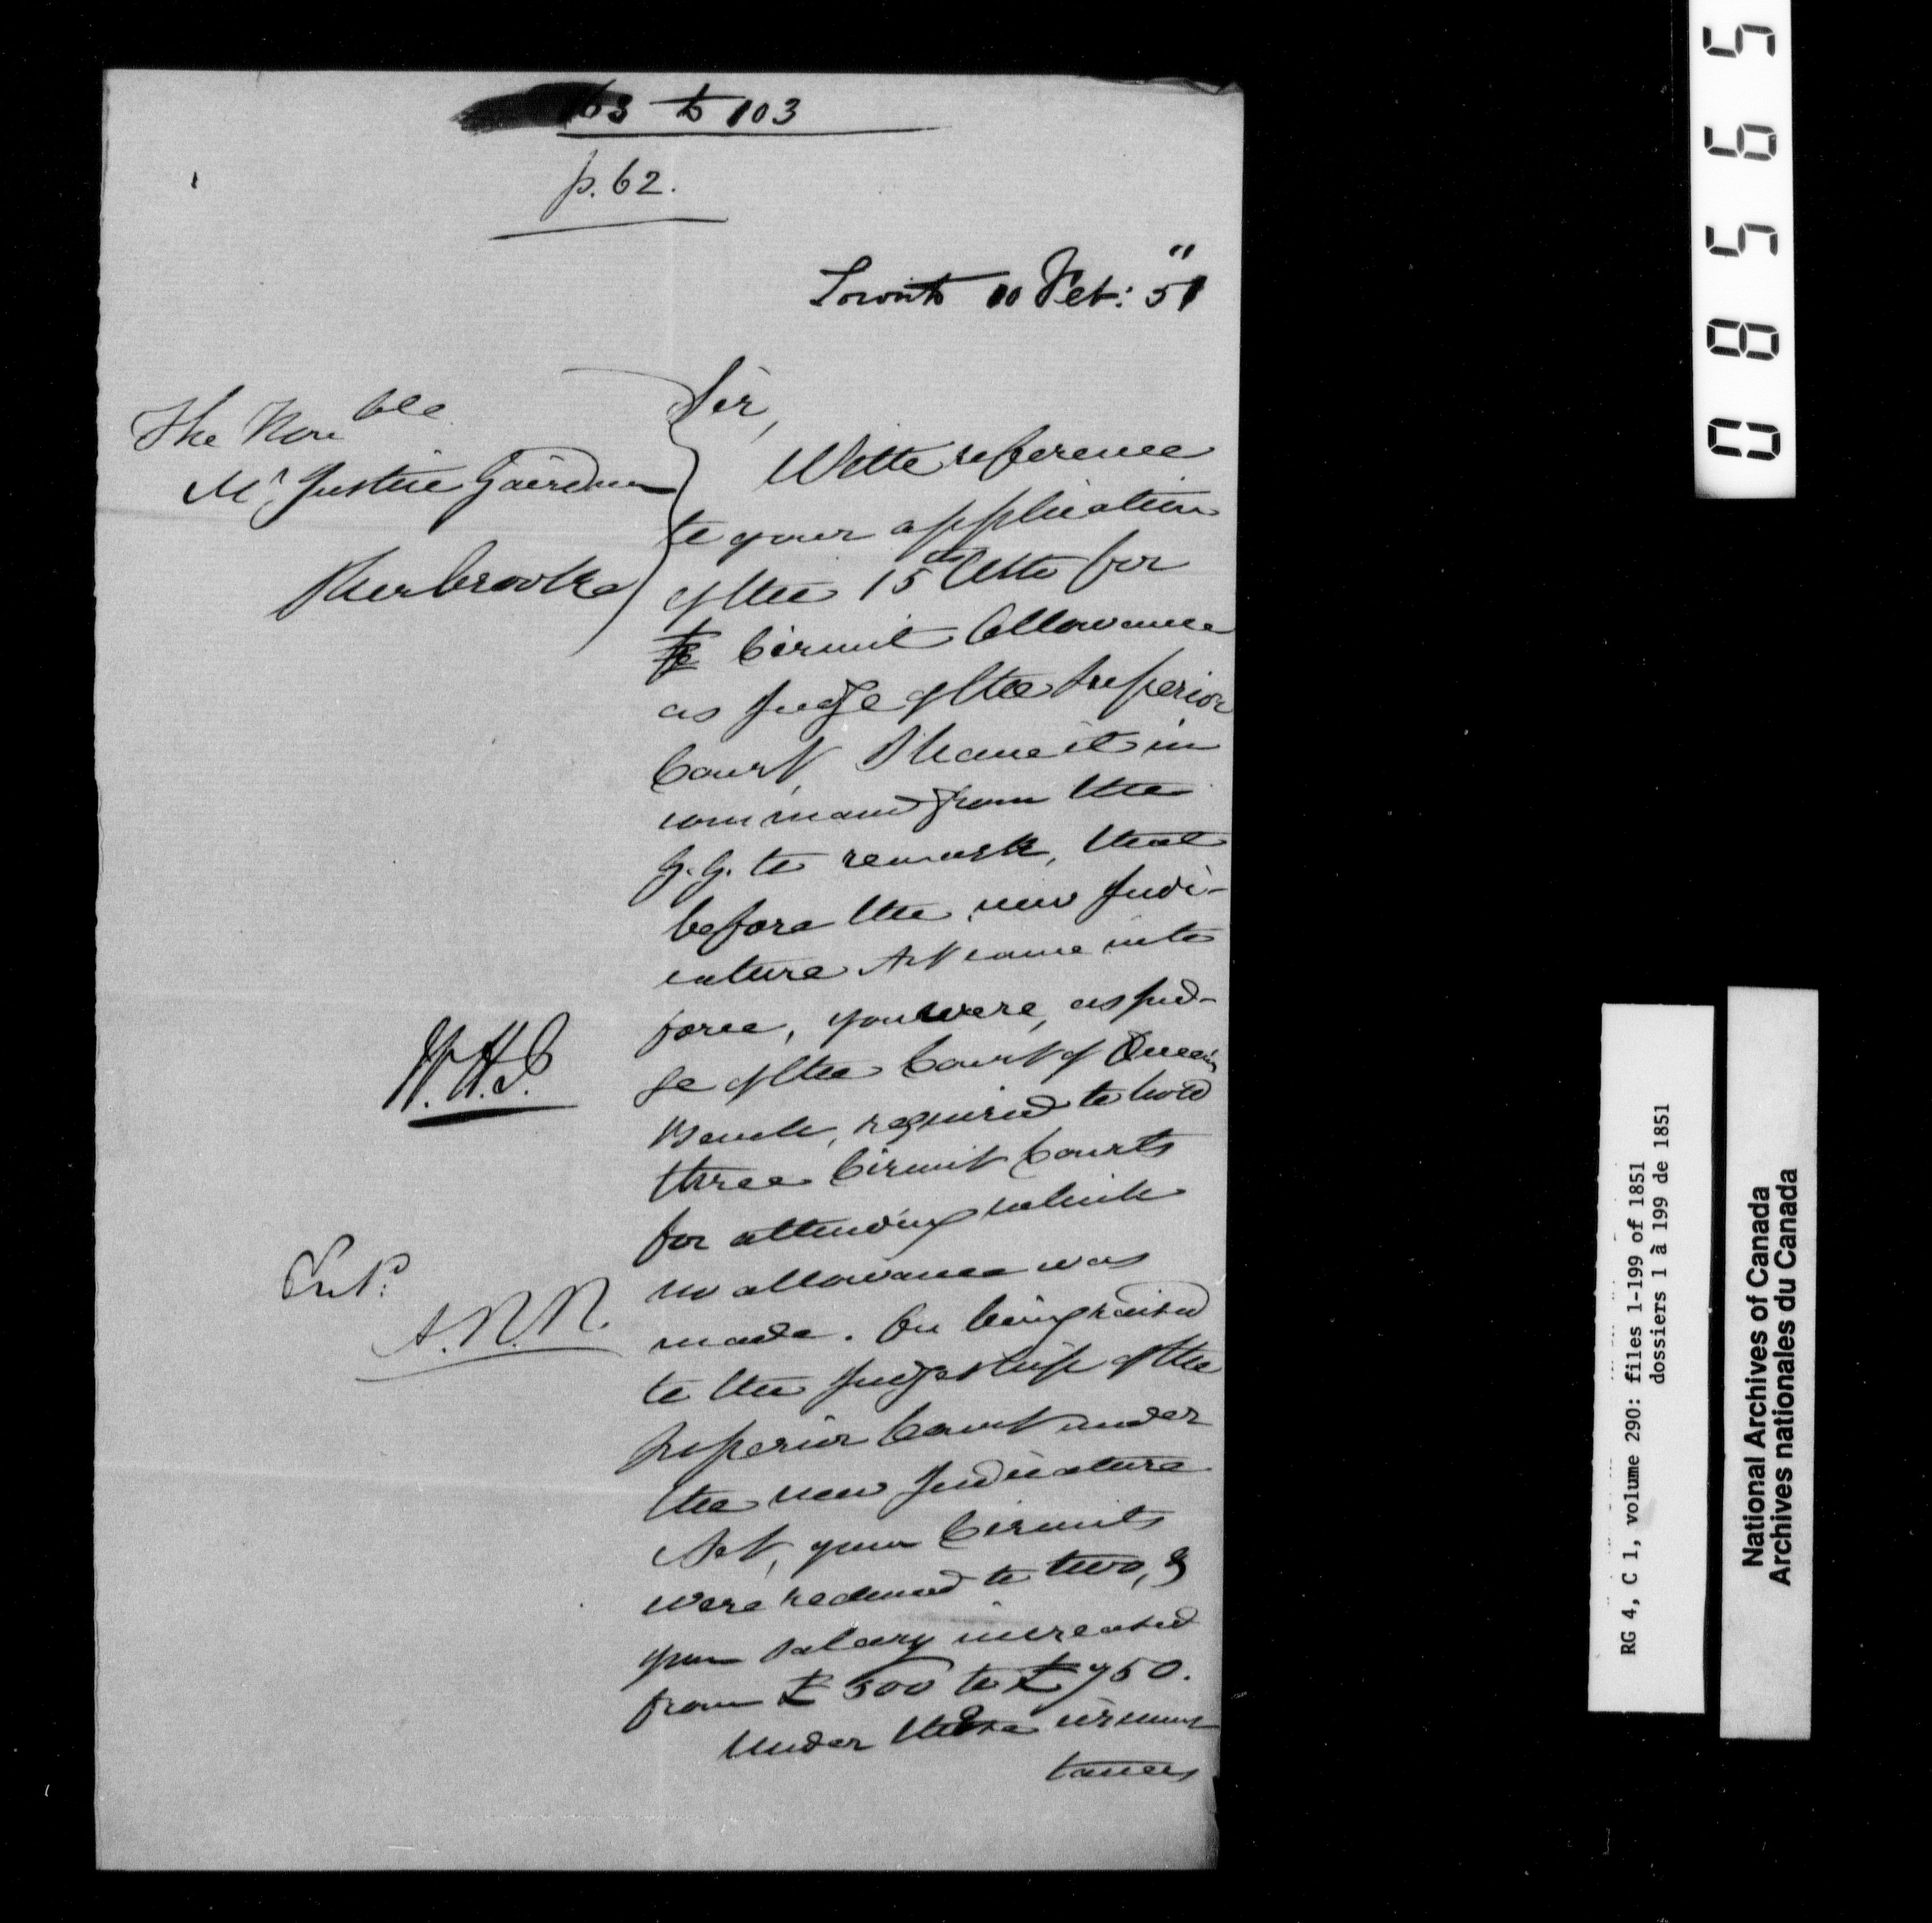 103 to 103
p. 62.
Toronto 10 Feb: 51
The Honble
Mr. Justice Gairdner
Sherbrooke
Sir,
With reference
to your application
of the 15th Ulto for
Circuit Allowance
as Judge of the Superior
Court, I have it in
command from the
G. G. to remark, that
before the new Judi-
cature Act came into
force, you were, as Jud-
ge of the Court of Queen's
Bench, required to hold
three Circuit Courts
for attending which
no allowance was
made. On being raised
to the Judgeship of the
Superior Court under
the new Judicature
Act, your Circuits
were reduced to two, &
your salary increased
from £500 to £750.
Under these circums
tances
Entd.
A.N.M.
08565
RG 4, C 1, volume 290: files 1-199 of 1851
dossiers 1 à 199 de 1851
National Archives of Canada
Archives nationales du Canada